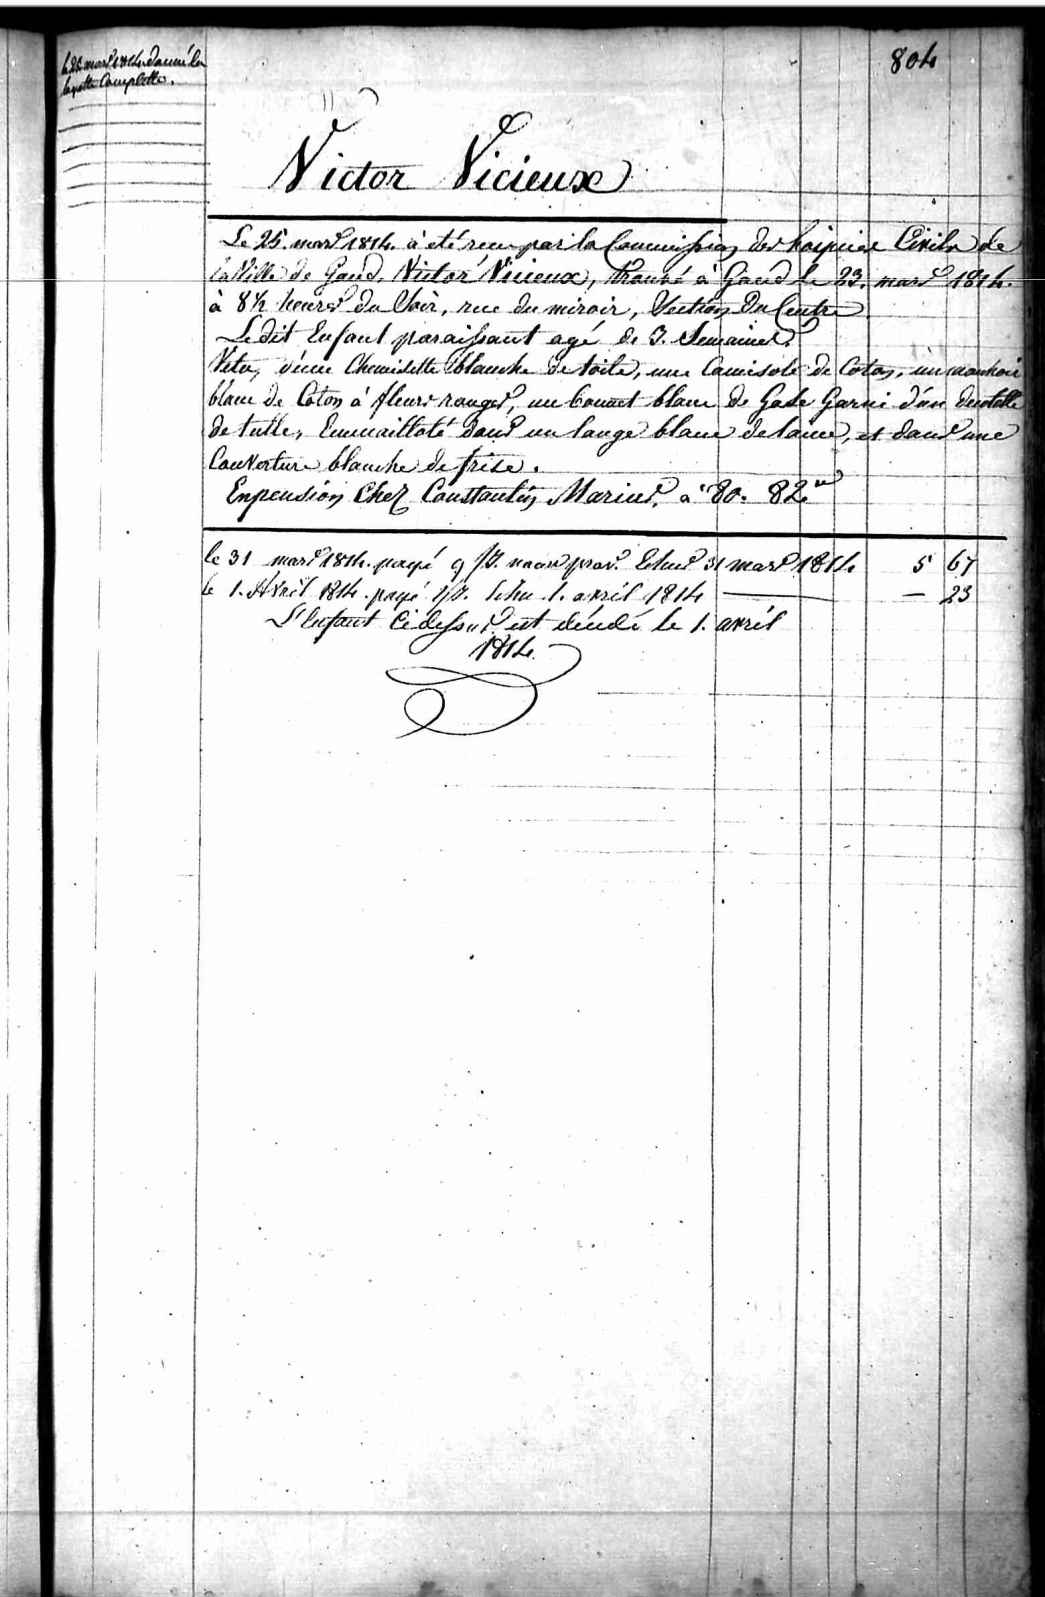 804
le 25 mars 1814 donné la
layette Complette.
Victor Vicieux
Le 25. mars 1814. à été recu par la Commission des hospices Civils de
la Ville de Gand, Victor Vicieux, trouvé à Gand le 23. mars 1814.
à 8½ heures du Soir, rue du miroir, Section Du Centre
Ledit Enfant paraissant agé de 3. Semaines.
Vetu, d'une Chemisette blanche de toile, une Camisole de Coton, un mouchoir
blanc de Coton à fleurs rouges, un bonnet blanc de Gase Garni d'un dentelle
de tulle, Emmailloté dans un lange blanc de laine, et dans une
Couverture blanche de frise.
Enpension Chez Constantin Marius, a 80. 82
le 31 mars 1814. payé 9 Echus 31 mars 1814 5 67
le 1. Avril 1814. payé Echu 1. avril 1814 — — 23
L'Enfant Cidessus est décédé le 1. avril
1814.